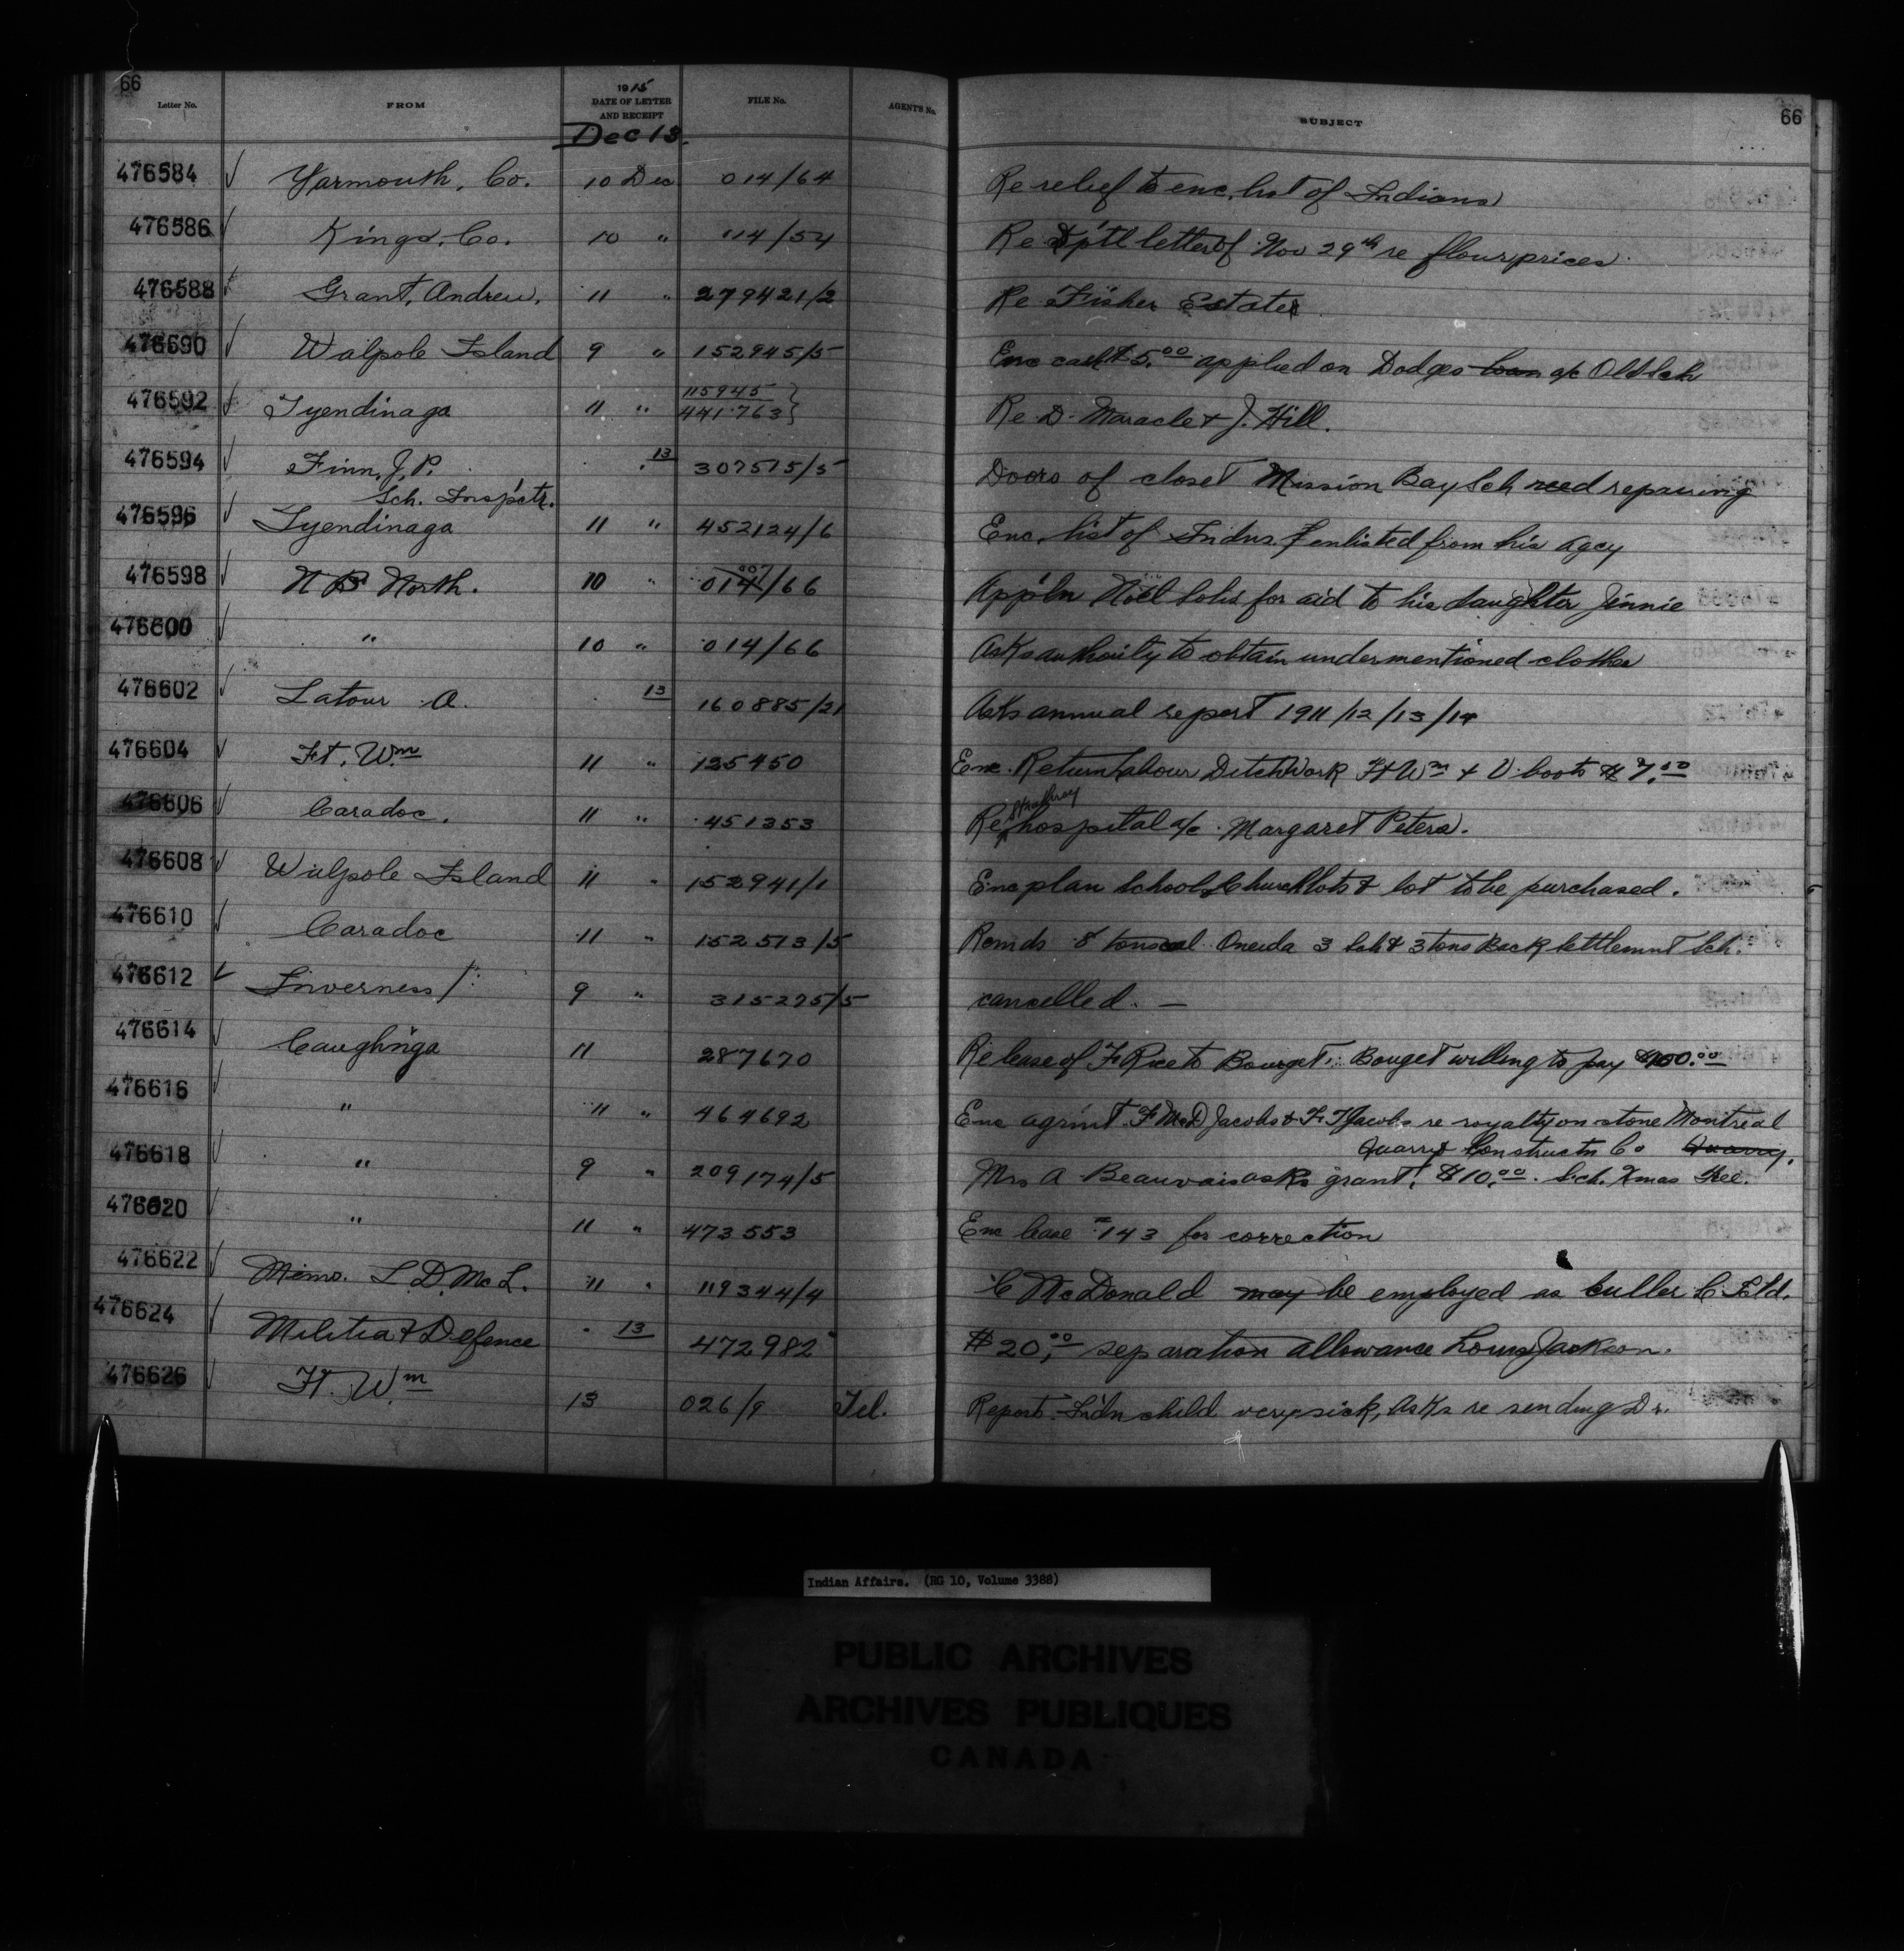 66
Letter No. FROM 1915 DATE OF LETTER AND RECEIPT FILE No. AGENTS No. SUBJECT 66
Dec 13.
476584 Yarmouth, Co. 10 Dec 014/64 Re relief to enc. list of Indians
476586 Kings, Co. 10 " 014/54 Re Dptl letter of Nov 29th re flour prices
476588 Grant, Andrew. 11 " 279421/2 Re Fisher Estate
476590 Walpole Island 9 " 152945/5 Enc cash $5.00 applied on Dodges loan a/c Old Sch
476592 Tyendinaga 11 " 115945 } 441763 } Re D. Maracle & J. Hill.
476594 Finn, J. P. 13 307515/5 Doors of closet Mission Bay Sch need repairing
Sch. Inspctr.
476596 Tyendinaga 11 " 452124/6 Enc. list of Indns. enlisted from his agcy
476598 N B North. 10 " 014/66 Appln Noel for aid to his daughter Jinnie
476600 " 10 " 014/66 Asks authority to obtain undermentioned clothes
476602 Latour A. 13 160885/21 Asks annual report 1911/12/13/14
476604 Ft. Wm 11 " 125450 Enc. Return labour Ditch Work Ft Wm
476606 Caradoc. 11 " 451353 Re Strathroy hospital a/c Margaret Peters.
476608 Walpole Island 11 " 152941/1 Enc plan School, Church lots & lot to be purchased.
476610 Caradoc 11 " 152513/5 Rcmds 8 tons coal Oneida 3 Sch & 3 tons Back settlemnt Sch.
476612 Inverness 9 " 315275/5 cancelled. —
476614 Caughnga 11 287670 Re lease of F Rice to Bourget. Bouget willing to pay $400.00
476616 " 11 " 464692 Enc agrmt. F McD Jacobs & F. T Jacobs re royalty on stone Montreal
Quarry & Constructn Co Quarry.
476618 " 9 " 209174/5 Mrs A Beauvais asks grant, $10.00. Sch. Xmas tree.
476620 " 11 " 473553 Enc lease #143 for correction
476622 Memo. L. D. Mc L. 11 " 119344/4 C McDonald may be employed as culler
476624 Militia & Defence 13 472982 $20.00 separation allowance Louis Jackson.
476626 Ft. Wm 13 026/9 Tel. Report. Indn child very sick, Asks re sending Dr.
Indian Affairs. (RG 10, Volume 3388)
PUBLIC ARCHIVES
ARCHIVES PUBLIQUES
CANADA